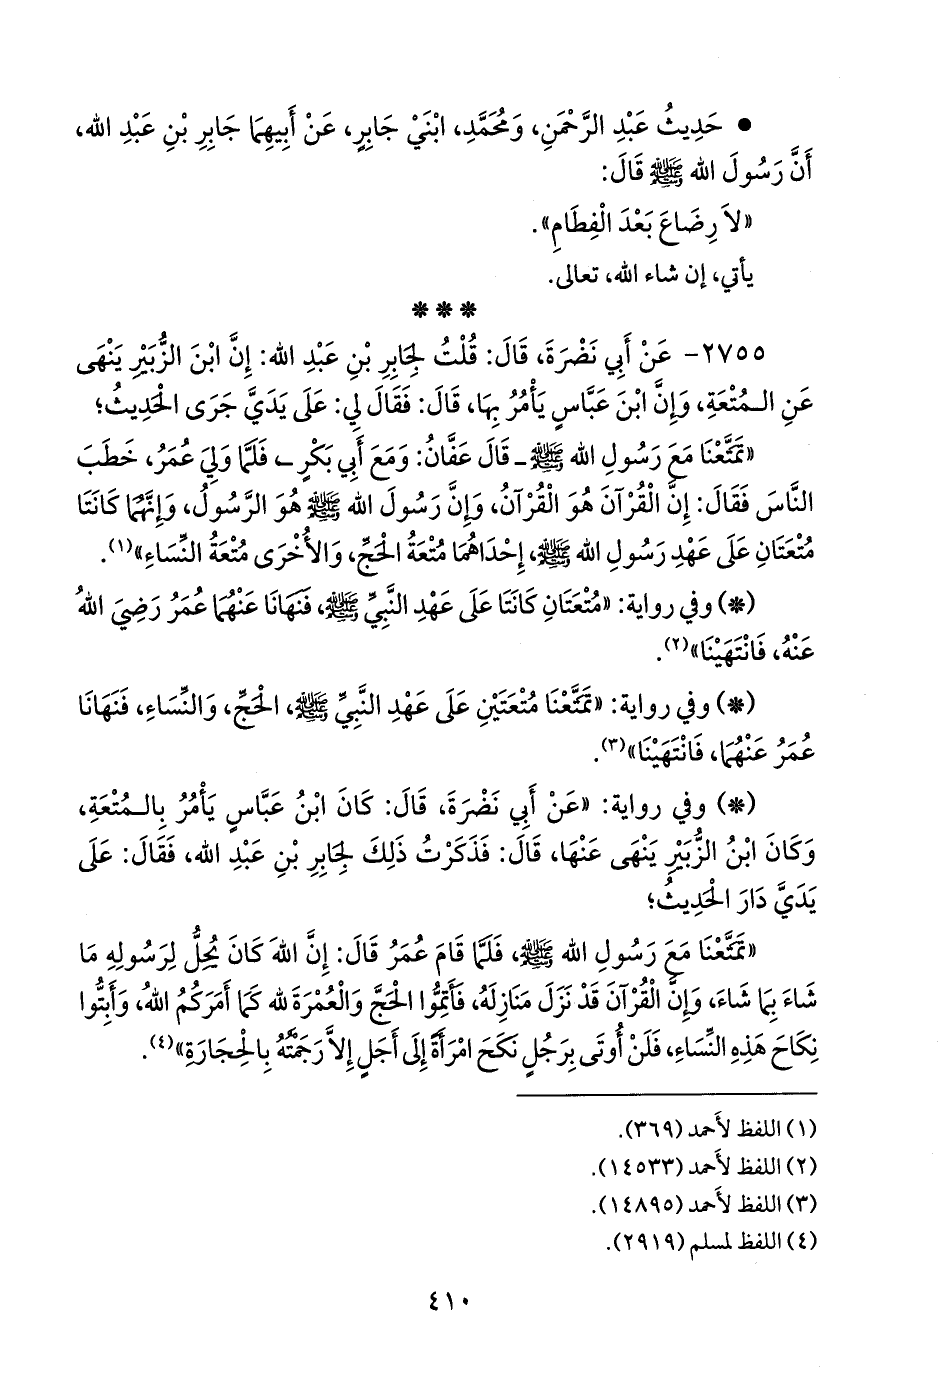 • حَدِيثُ عَبْدِ الرَّحْمَنِ، وَمُحَمَّدِ، ابْنَيْ جَابِرٍ، عَنْ أَبِيهِمَا جَابِرِ بْنِ عَبْدِ الله،
أَنَّ رَسُولَ الله ﷺ قَالَ:
«لاَ رِضَاعَ بَعْدَ الْفِطَامِ».
يأتي، إن شاء الله، تعالى.
* * *
٢٧٥٥- عَنْ أَبِي نَضْرَةَ، قَالَ: قُلْتُ لِجَابِرِ بْنِ عَبْدِ الله: إِنَّ ابْنَ الزُّبَيْرِ يَنْهَى
عَنِ الـمُتْعَةِ، وَإِنَّ ابْنَ عَبَّاسٍ يَأْمُرُ بِهَا، قَالَ: فَقَالَ لِي: عَلَى يَدَيَّ جَرَى الْحَدِيثُ؛
«تَمَتَّعْنَا مَعَ رَسُولِ الله ﷺ ـ قَالَ عَفَّانُ: وَمَعَ أَبِي بَكْرٍ ـ، فَلَمَّا وَلِيَ عُمَرُ، خَطَبَ
النَّاسَ فَقَالَ: إِنَّ الْقُرْآنَ هُوَ الْقُرْآنُ، وَإِنَّ رَسُولَ الله ﷺ هُوَ الرَّسُولُ، وَإِنَّهُمَا كَانَتَا
مُتْعَتَانِ عَلَى عَهْدِ رَسُولِ الله ﷺ، إِحْدَاهُمَا مُتْعَةُ الْحَجِّ، وَالأُخْرَى مُتْعَةُ النِّسَاءِ»(١).
(*) وفي رواية: «مُتْعَتَانِ كَانَتَا عَلَى عَهْدِ النَّبِيِّ ﷺ، فَنَهَانَا عَنْهُمَا عُمَرُ رَضِيَ اللهُ
عَنْهُ، فَانْتَهَيْنَا»(٢).
(*) وفي رواية: «تَمَتَّعْنَا مُتْعَتَيْنِ عَلَى عَهْدِ النَّبِيِّ ﷺ، الْحَجِّ، وَالنِّسَاءِ، فَنَهَانَا
عُمَرُ عَنْهُمَا، فَانْتَهَيْنَا»(٣).
(*) وفي رواية: «عَنْ أَبِي نَضْرَةَ، قَالَ: كَانَ ابْنُ عَبَّاسٍ يَأْمُرُ بِالـمُتْعَةِ،
وَكَانَ ابْنُ الزُّبَيْرِ يَنْهَى عَنْهَا، قَالَ: فَذَكَرْتُ ذَلِكَ لِجَابِرِ بْنِ عَبْدِ الله، فَقَالَ: عَلَى
يَدَيَّ دَارَ الْحَدِيثُ؛
«تَمَتَّعْنَا مَعَ رَسُولِ الله ﷺ، فَلَمَّا قَامَ عُمَرُ قَالَ: إِنَّ اللهَ كَانَ يُحِلُّ لِرَسُولِهِ مَا
شَاءَ بِمَا شَاءَ، وَإِنَّ الْقُرْآنَ قَدْ نَزَلَ مَنَازِلَهُ، فَأَتِمُّوا الْحَجَّ وَالْعُمْرَةَ لله كَمَا أَمَرَكُمُ اللهُ، وَأَبِتُّوا
نِكَاحَ هَذِهِ النِّسَاءِ، فَلَنْ أُوتَى بِرَجُلٍ نَكَحَ امْرَأَةً إِلَى أَجَلٍ إِلاَّ رَجَمْتُهُ بِالْحِجَارَةِ»(٤).
(١) اللفظ لأحمد (٣٦٩).
(٢) اللفظ لأحمد (١٤٥٣٣).
(٣) اللفظ لأحمد (١٤٨٩٥).
(٤) اللفظ لمسلم (٢٩١٩).
٤١٠